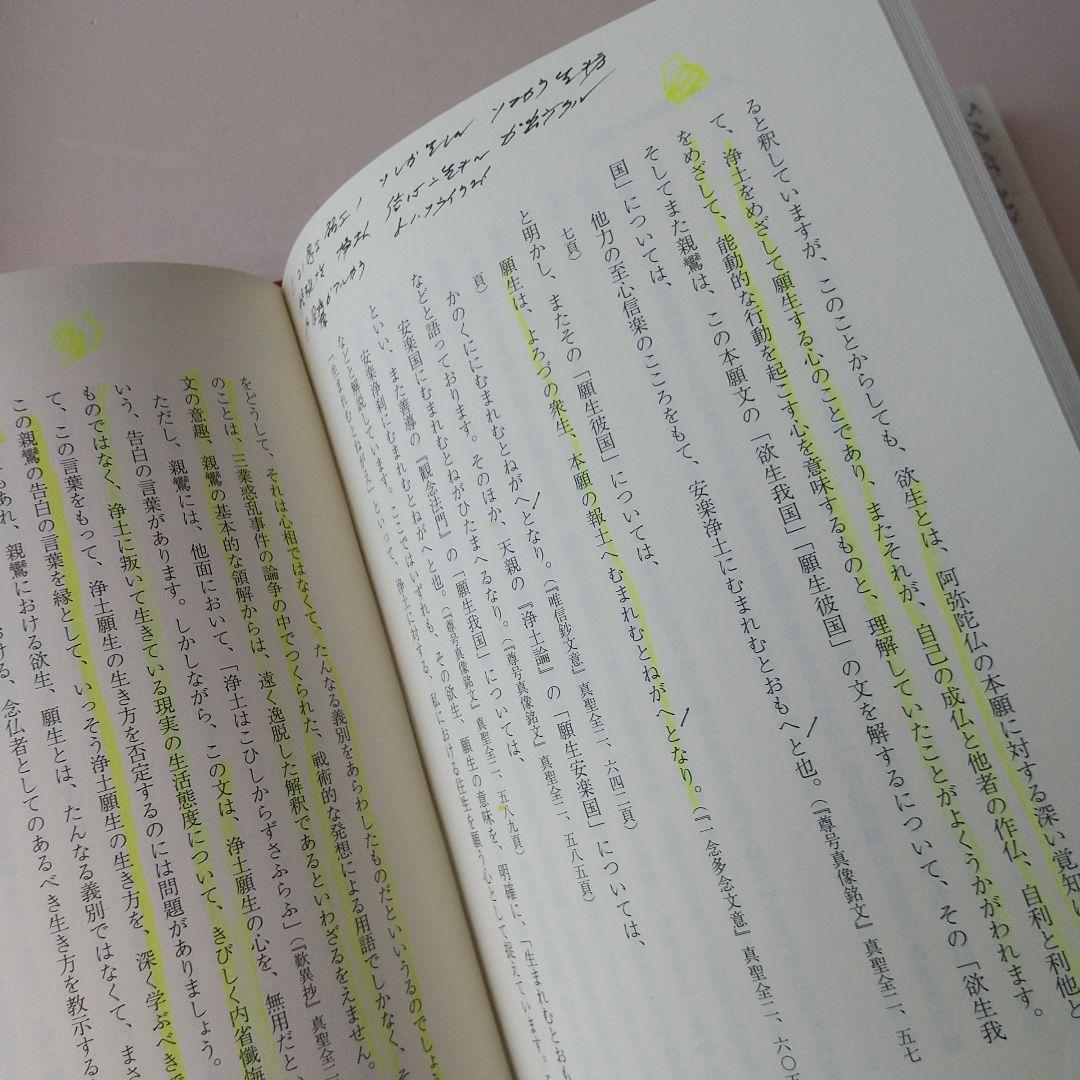 ると釈していますが、このことからしても、欲生とは、阿弥陀仏の本願に対する深い覚知
て、浄土をめざして願生する心のことであり、またそれが、自己の成仏と他者の作仏、自利と利他と
をめざして、能動的な行動を起こす心を意味するものと、理解していたことがよくうかがわれます。
そしてまた親鸞は、この本願文の「欲生我国」「願生彼国」の文を解するについて、その「欲生我
国」については、
他力の至心信楽のこころをもて、安楽浄土にむまれむとおもへと也。(『尊号真像銘文』真聖全二、五七
七頁)
と明かし、またその「願生彼国」については、
願生は、よろづの衆生、本願の報土へむまれむとねがへとなり。(『一念多念文意』真聖全二、六〇五
頁)
かのくににむまれむとねがへとなり。(『唯信鈔文意』真聖全二、六四二頁)
などと語っております。そのほか、天親の『浄土論』の「願生安楽国」については、
安楽国にむまれむとねがひたまへるなり。(『尊号真像銘文』真聖全二、五八五頁)
といい、また善導の『観念法門』の「願生我国」については、
安楽浄刹にむまれむとねがへと也。(『尊号真像銘文』真聖全二、五八九頁)
などと解説しています。ここではいずれも、その欲生、願生の意味を、明確に、「生まれむとおも
「生まれむとねがえ」といって、浄土に対する、私における往生を願う心として捉えています。
をどうして、それは心相ではなくて、たんなる義別をあらわしたものだといいうるのでしょ
のことは、三業惑乱事件の論争の中でつくられた、戦術的な発想による用語でしかなく、
文の意趣、親鸞の基本的な領解からは、遠く逸脱した解釈であるといわざるをえません。
ただし、親鸞には、他面において、「浄土はこひしからずさふらふ」(『歎異抄』真聖全二
いう、告白の言葉があります。しかしながら、この文は、浄土願生の心を、無用だとい
ものではなく、浄土に叛いて生きている現実の生活態度について、きびしく内省懺悔
て、この言葉をもって、浄土願生の生き方を否定するのには問題がありましょう。
この親鸞の告白の言葉を縁として、いっそう浄土願生の生き方を、深く学ぶべき
もあれ、親鸞における欲生、願生とは、たんなる義別ではなくて、まさ
おける、念仏者としてのあるべき生き方を教示する